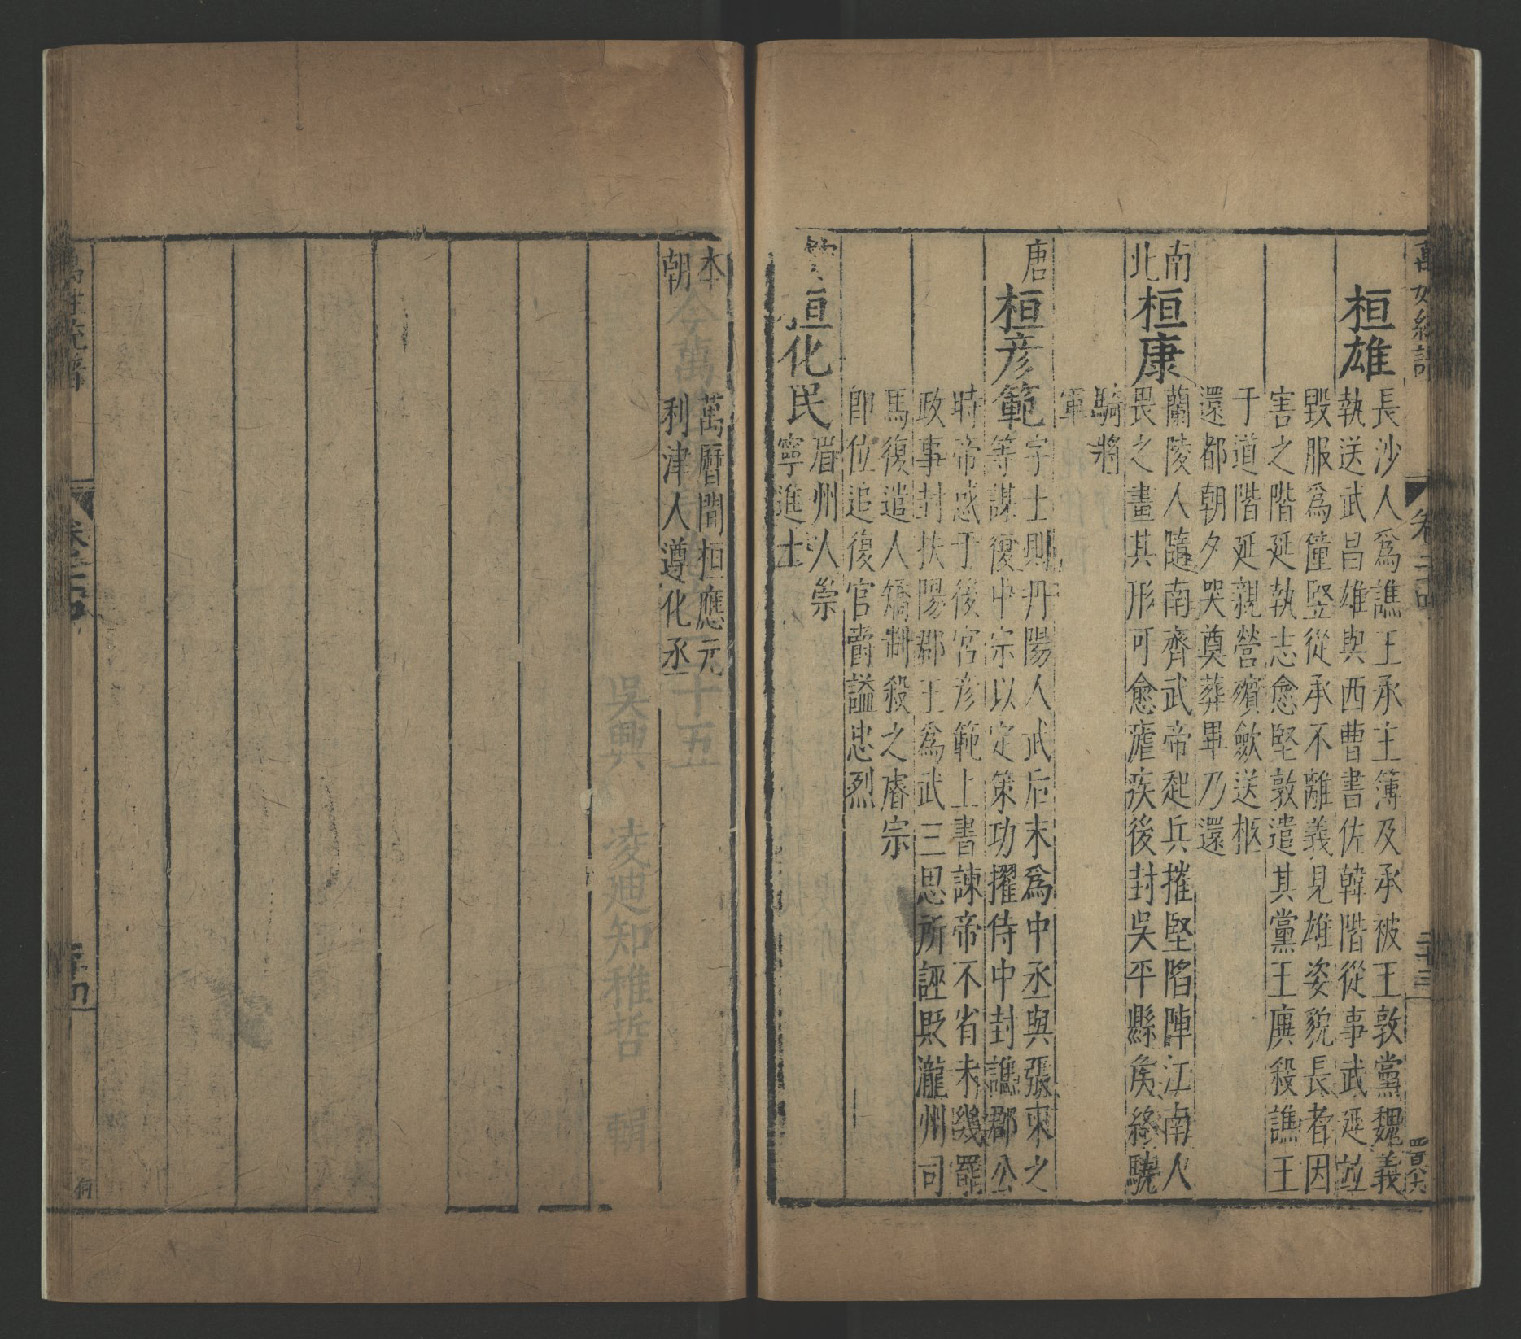 桓雄
長沙人爲譙王承主簿及承被王敦黨魏義
執送武昌雄與西曹書佐韓階從事武延並
毀服爲僮竪從承不離義見雄姿貌長者因
害之階延執志愈堅敦遣其黨王廙殺譙王
于道階延親營殯歛送柩
還都朝夕哭奠葬畢乃還
南北
桓康
蘭陵人隨南齊武帝起兵摧堅陷陣江南人
畏之畫其形可愈瘧疾後封吳平縣矦終驍
騎將
軍
唐
桓彥範
字士則丹陽人武后末爲中丞與張柬之
等謀復中宗以定策功擢侍中封譙郡公
時帝惑于後宮彥範上書諫帝不省未幾罷
政事封扶陽郡王爲武三思所誣貶瀧州司
馬復遣人矯制殺之睿宗
即位追復官爵謚忠烈
桓化民
眉州人崇
寧進士
本朝
萬曆間桓應元
利津人遵化丞